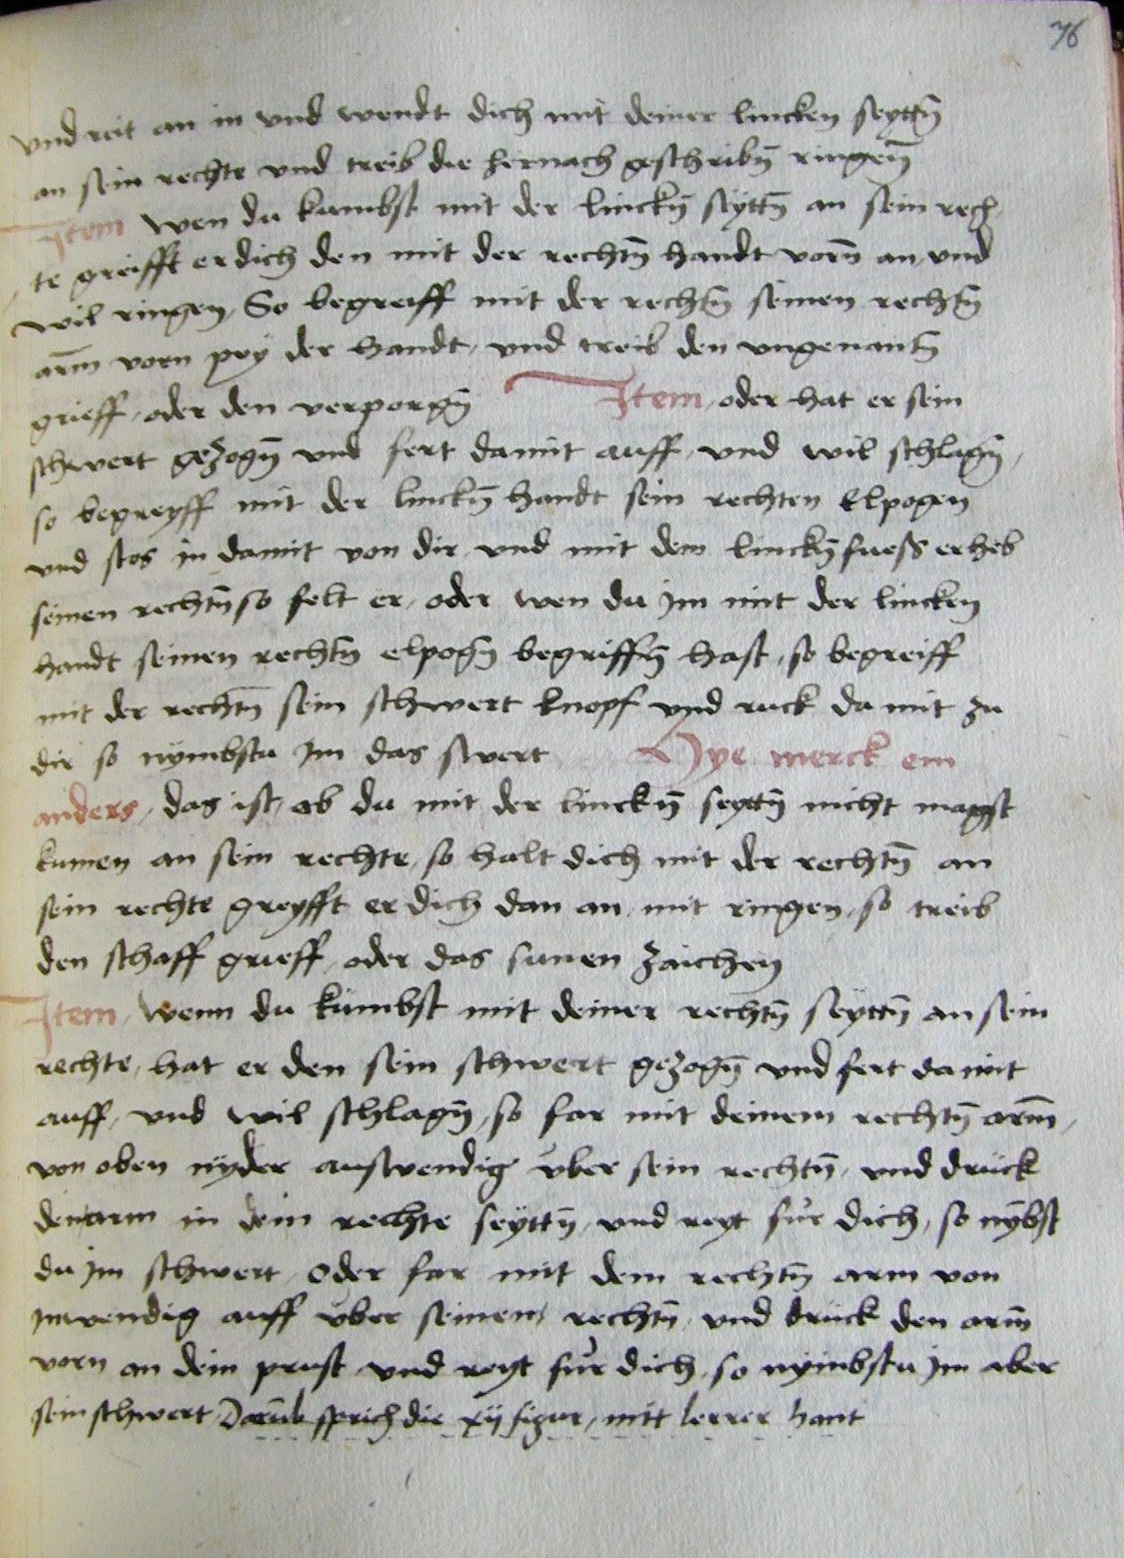 76
vnd reit an in vnd wendt dich mit deiner lincken seyttn̄
an sein rechte vnd treib die hernach geschribn̄ ringenn̄
Item wen du kumbst mit der linckn̄ seyttn̄ an sein rech
te greifft er dich den mit der rechtn̄ handt vorn̄ an vnd
wil ringen, So begreiff mit der rechtn̄ seinen rechtn̄
arm̄ vorn pey der handt, vnd treib den vngenantn̄
grieff, oder den verporgn̄ Item, oder hat er sein
schwert gezogn̄ vnd fert damit auff, vnd wil schlagn̄,
so begreyff mit der linckn̄ handt sein rechten Elpogen
vnd stos in damit von dir vnd mit dem linckn̄ fuess erheb
seinen rechtn̄ so felt er, oder wen du jm mit der lincken
handt seinen rechtn̄ elpogn̄ begriffn̄ hast, so begreiff
mit der rechtn̄ sein schwert knopf vnd ruck da mit zu
dir so nymbstu Im das swert Hye merck ein
anders, das ist, ob du mit der linckn̄ seyttn̄ nicht magst
kumen an sein rechte, so halt dich mit der rechtn̄ an
sein rechte greyfft er dich dan an, mit ringen, so treib
den schaff grieff, oder das sunen zaichen
Item, wenn du kumbst mit deiner rechtn̄ seyttn̄ an sein
rechte, hat er den sein schwert gezogn̄ vnd fert damit
auff, vnd wil schlagn̄, so far mit deinem rechtn̄ arm̄,
von oben nyder auswendig vber sein rechtn̄, vnd druck
den arm in dein rechte seyttn̄, vnd reyt für dich, so nȳbst
du jm schwert, Oder far mit dem rechtn̄ arm von
jnwendig auff vber seinen, rechtn̄, vnd druck den arm̄
vorn an dein prust vnd reyt für dich, so nymbstu jm aber
sein schwert, Darūb sprich die xij figur, mitt lerrer hant